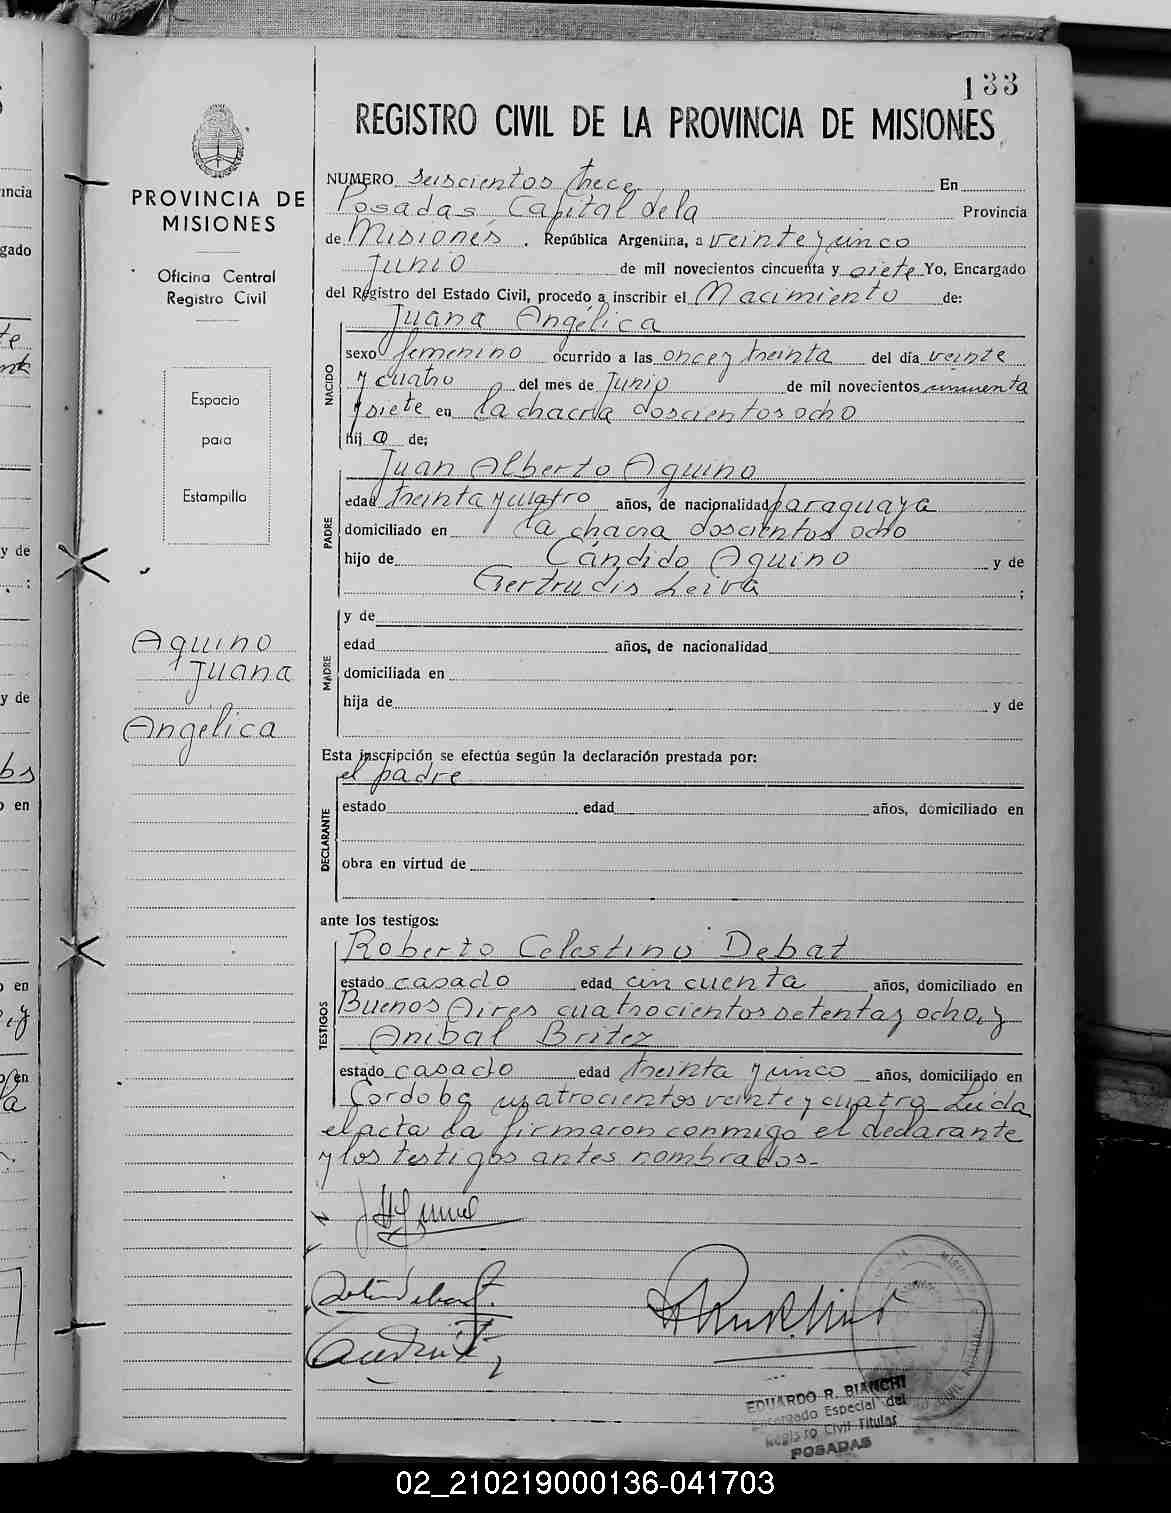 133
REGISTRO CIVIL DE LA PROVINCIA DE MISIONES
PROVINCIA DE
MISIONES
Oficina Central
Registro Civil
Espacio
para
Estampilla
Aquino
Juana
Angélica
NUMERO seiscientos trece En
Posadas, Capital de la Provincia
de Misiones. República Argentina, a veinte y cinco
Junio de mil novecientos cincuenta y siete Yo, Encargado
del Registro del Estado Civil, procedo a inscribir el Nacimiento de:
NACIDO
Juana Angélica
sexo femenino ocurrido a las once y treinta del día veinte
y cuatro del mes de Junio de mil novecientos cincuenta
y siete en la chacra doscientos ocho
hij a de;
PADRE
Juan Alberto Aquino
edad treinta y cuatro años, de nacionalidad paraguaya
domiciliado en la chacra doscientos ocho
hijo de Cándido Aquino y de
Gertrudis Leiva ;
MADRE
y de
edad años, de nacionalidad
domiciliada en
hija de y de
Esta inscripción se efectúa según la declaración prestada por:
el padre
DECLARANTE
estado edad años, domiciliado en
obra en virtud de
ante los testigos:
TESTIGOS
Roberto Celestino Debat
estado casado edad cincuenta años, domiciliado en
Buenos Aires cuatrocientos setenta y ocho, y
Anibal Britez
estado casado edad treinta y cinco años, domiciliado en
Cordoba cuatrocientos veinte y cuatro Leida
el acta la firmaron conmigo el declarante
y los testigos antes nombrados.-
EDUARDO R. BIANCHI
Encargado Especial del
Registro Civil Titular
POSADAS
02_210219000136-041703